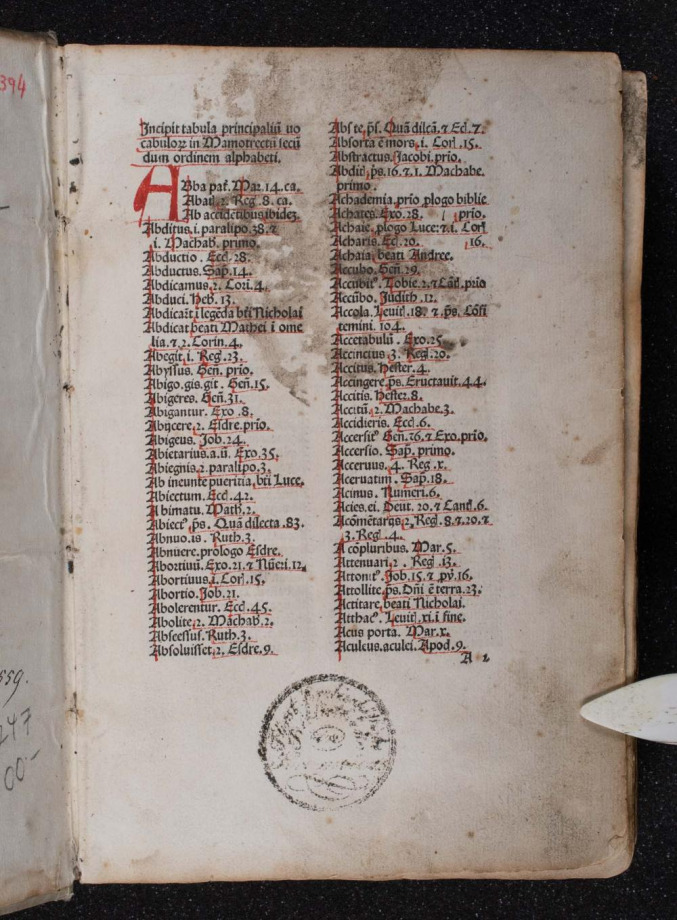 394
Incipit tabula principaliū uo
cabulorꝝ in Mamotrectū secū
dum ordinem alphabeti.
ABba pat̄. Mar.14.ca.
Abail.2. Reḡ 8. ca.
Ab accidētibus ibidez
Abditus.i. paralipo.38.⁊
i. Machab̄. primo.
Abductio. Eccl̄.28.
Abductus. Sap̄.14.
Abdicamus.2. Cori.4.
Abduci. Heb̄. 13.
Abdicāt i legēda bti Nicholai
Abdicat beati Mathei i ome
lia.⁊.2. Corin.4.
Abegit.i. Reḡ.23.
Abyssus. Gen̄. prio.
Abigo.gis.git. Gen̄.15.
Abigeres. Gen̄.31.
Abigantur. Exo.8.
Abijcere.2. Esdre.prio.
Abigeus. Job.24.
Abietarius.a.ū. Exo.35.
Abiegnis.2.paralipo.3.
Ab ineunte pueritia. bti Luce.
Abiectum. Eccl̄.42.
A bimatu. Math̄.2.
Abiectꝰ.ps. Quā dilecta.83.
Abnuo.is. Ruth.3.
Abnuere.prologo Esdre.
Abortiuū. Exo.21.⁊ Nūeri.12.
Abortiuus.i. Cor̄.15.
Abortio. Job.21.
Abolerentur. Eccl̄.45.
Abolite.2. Māchab̄.2.
Abscessus. Ruth.3.
Absoluisset.2. Esdre.9.
Abs te.ps̄. Quā dilc̄ā.⁊ Ed̄.7.
Absorta ē mors.i. Cor̄.15.
Abstractus. Jacobi. prio.
Abdit̄.ps.16.⁊.1. Machabe.
primo.
Achademia.prio plogo biblie
Achates. Exo.28. prio.
Achaie.plogo Luce.⁊.i. Cor̄
Acharis. Ecl̄.20. 16.
Achaia. beati Andree.
Accubo. Gen̄.29.
Accūbitꝰ. Tobie.2.⁊ Cāt̄.prio
Accūbo. Judith.12.
Accola. Leuit̄.18. ⁊.ps. Cōfi
temini.104.
Accetabulū. Exo.25.
Accinctus.3. Reḡ.20.
Accitus. Hester.4.
Accingere.ps. Eructauit.44.
Accitis. Hester.8.
Accitū.2. Machabe.3.
Accidieris. Eccl̄.6.
Accersitꝰ Gen̄.26.⁊ Exo.prio.
Accersio. Sap̄. primo.
Aceruus.4. Reg.x.
Aceruatim. Sap̄.18.
Acinus. Numeri.6.
Acies.ei. Deut.20.⁊ Cant̄.6.
Acōmētarꝰs.2. Reḡ.8.⁊.20.⁊
3. Reḡ.4.
A cōpluribus. Mar.5.
Attenuari.2. Reḡ.13.
Attonitꝰ. Job.15.⁊ pṽ.16.
Attollite.ps. Dn̄i ē terra.23.
Actitare. beati Nicholai.
Atthacꝰ. Leuit̄.xi.i fine.
Acus porta. Mar.x.
Aculeus.aculei. Apod.9.
A 2
559.
247
00-